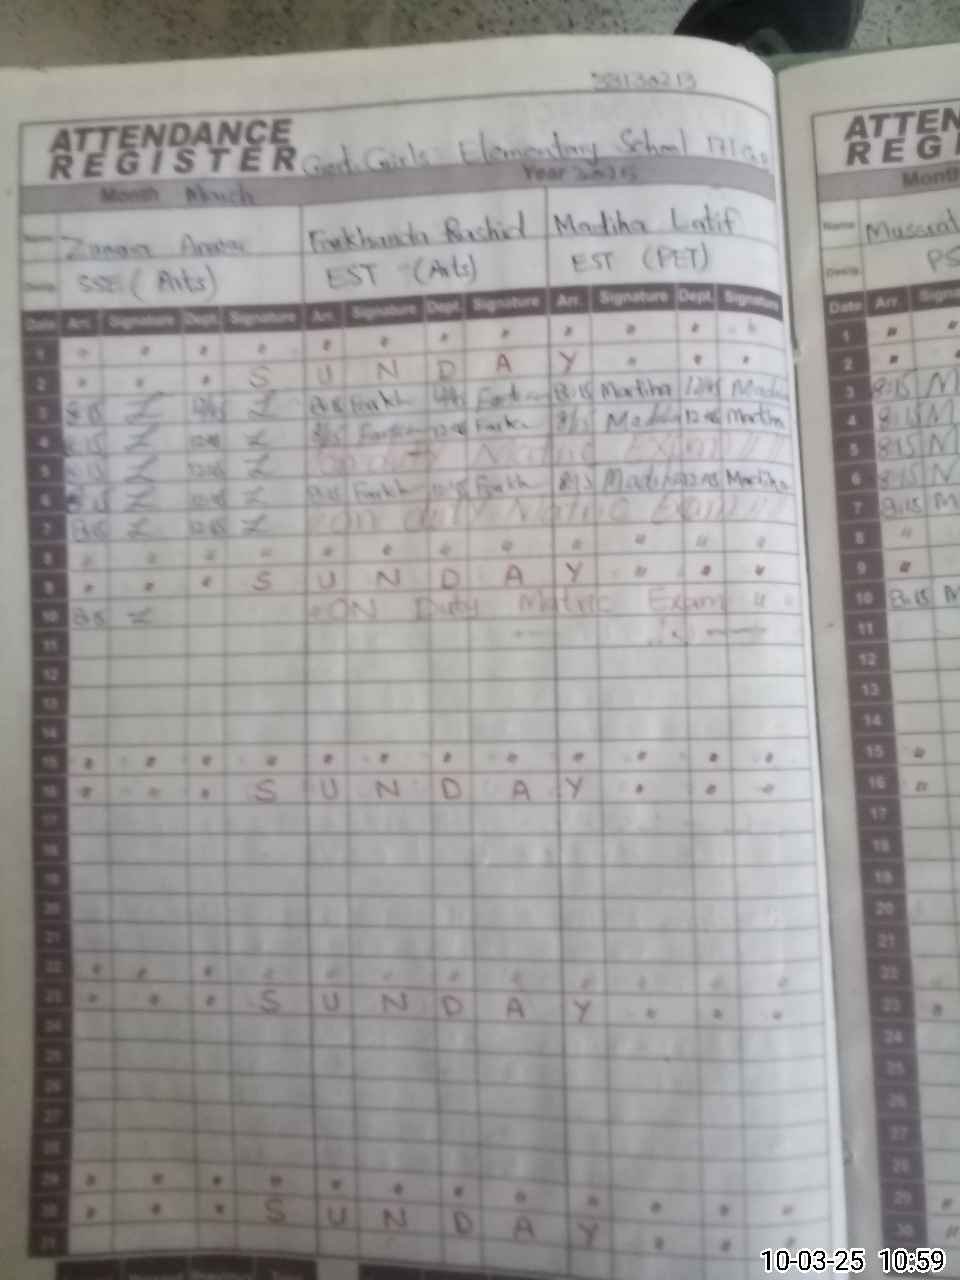 33130213
ATTENDANCE
REGISTER Govt. Girls Elementary School 171
Month March Year 2025
Name Anwar Farkhanda Rashid Madiha Latif
Desig. SSE (Arts) EST (Arts) EST (PET)
Date Arr. Signature Dept. Signature Arr. Signature Dept. Signature Arr. Signature Dept. Signature
1 " " " " " " " " " " " "
2 " " " S U N D A Y " " "
3 8:15 12:45 8:15 Farkh 12:45 8:15 Madiha 12:45 Madiha
4 8:15 12:45 8:15 12:45 Farkh 8:15 Madiha 12:45 Madiha
5 8:15 12:45 On duty Matric Exam " "
6 8:15 12:45 8:15 Farkh 12:45 Farkh 8:15 Madiha 12:45 Madiha
7 8:15 12:45 ON duty Matric Exam " "
8 " " " " " " " " " " " "
9 " " " S U N D A Y " " "
10 8:15 ON Duty Matric Exam " "
11
12
13
14
15 " " " " " " " " " " " "
16 " " " S U N D A Y " " "
17
18
19
20
21
22 " " " " " " " " " " " "
23 " " " S U N D A Y " " "
24
25
26
27
28
29 " " " " " " " " " " " "
30 " " " S U N D A Y " " "
31
ATTEN
REGI
Month
Name Mussarat
Desig. PS
Date Arr. Signa
1 " "
2 " "
3 8:15 M
4 8:15 M
5 8:15 M
6 8:15 M
7 8:15 M
8 "
9 "
10 8:15 M
11
12
13
14
15 "
16 "
17
18
19
20
21
22
23 "
24
25
26
27
28
29 "
30 "
10-03-25 10:59